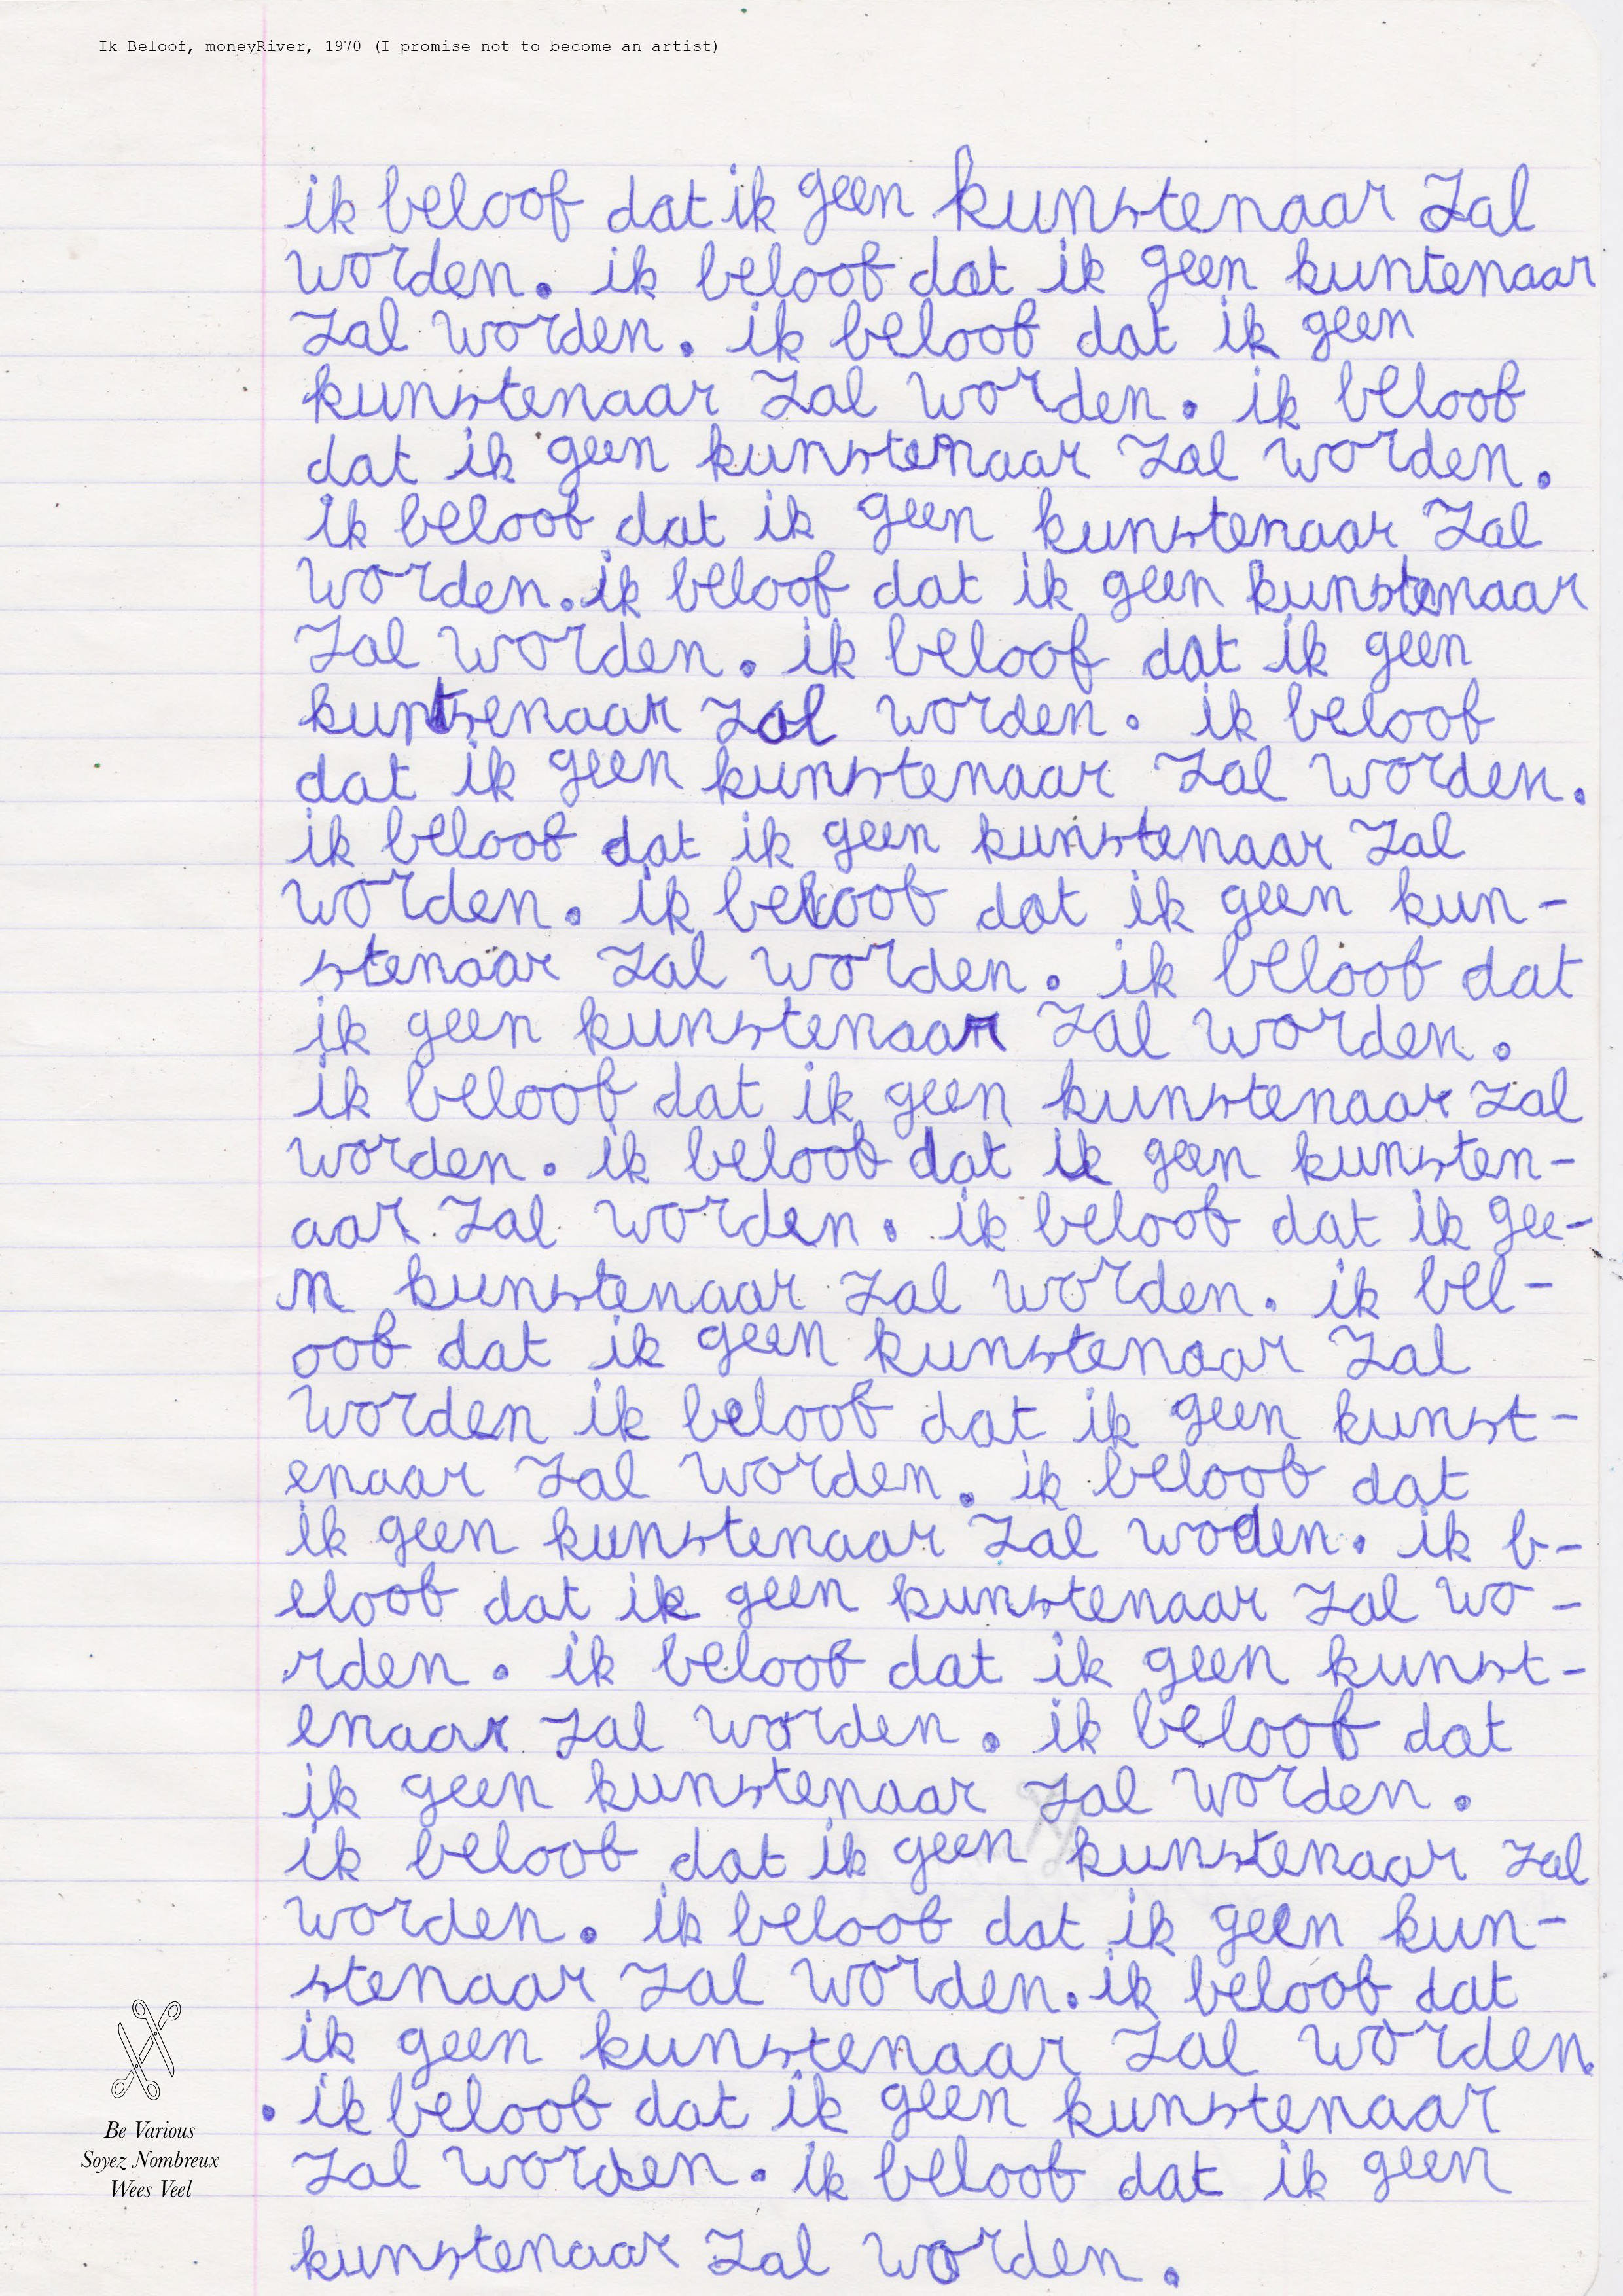 Ik Beloof, moneyRiver, 1970 (I promise not to become an artist)
ik beloof dat ik geen kunstenaar zal
worden. ik beloof dat ik geen kuntenaar
zal worden. ik beloof dat ik geen
kunstenaar zal worden. ik beloof
dat ik geen kunstenaar zal worden.
ik beloof dat ik geen kunstenaar zal
worden. ik beloof dat ik geen kunstenaar
zal worden. ik beloof dat ik geen
kuntsenaar zal worden. ik beloof
dat ik geen kunstenaar zal worden.
ik beloof dat ik geen kunstenaar zal
worden. ik beloof dat ik geen kun-
stenaar zal worden. ik beloof dat
ik geen kunstenaar zal worden.
ik beloof dat ik geen kunstenaar zal
worden. ik beloof dat ik geen kunsten-
aar zal worden. ik beloof dat ik gee-
n kunstenaar zal worden. ik bel-
oof dat ik geen kunstenaar zal
worden ik beloof dat ik geen kunst-
enaar zal worden. ik beloof dat
ik geen kunstenaar zal woden. ik b-
eloof dat ik geen kunstenaar zal wo-
rden. ik beloof dat ik geen kunst-
enaar zal worden. ik beloof dat
ik geen kunstenaar zal worden.
ik beloof dat ik geen kunstenaar zal
worden. ik beloof dat ik geen kun-
stenaar zal worden. ik beloof dat
ik geen kunstenaar zal worden
. ik beloof dat ik geen kunstenaar
zal worden. ik beloof dat ik geen
kunstenaar zal worden.
Be Various
Soyez Nombreux
Wees Veel